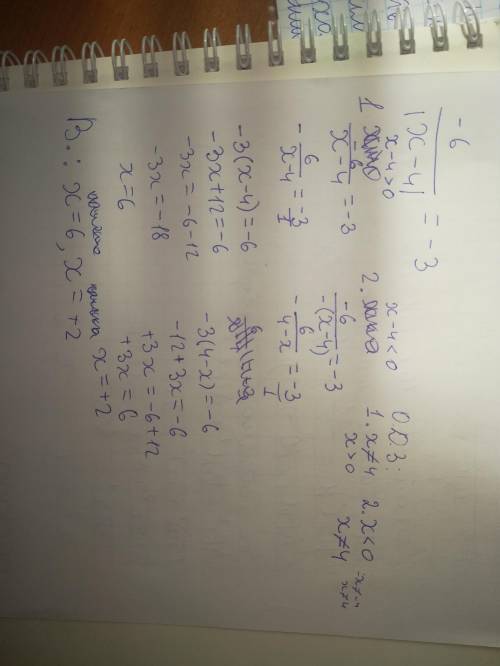 -6 / |x-4| = -3
1 x-4>0
-6 / x-4 = -3
- 6 / x-4 = -3 / 1
-3(x-4) = -6
-3x+12 = -6
-3x = -6-12
-3x = -18
x = 6
2. x-4<0
-6 / -(x-4) = -3
- 6 / 4-x = -3 / 1
-3(4-x) = -6
-12+3x = -6
+3x = -6+12
+3x = 6
x = +2
О.Д.З:
1. x≠4
x>0
2. x<0
x≠4
-x≠-4
x≠4
В.: x=6, x=+2